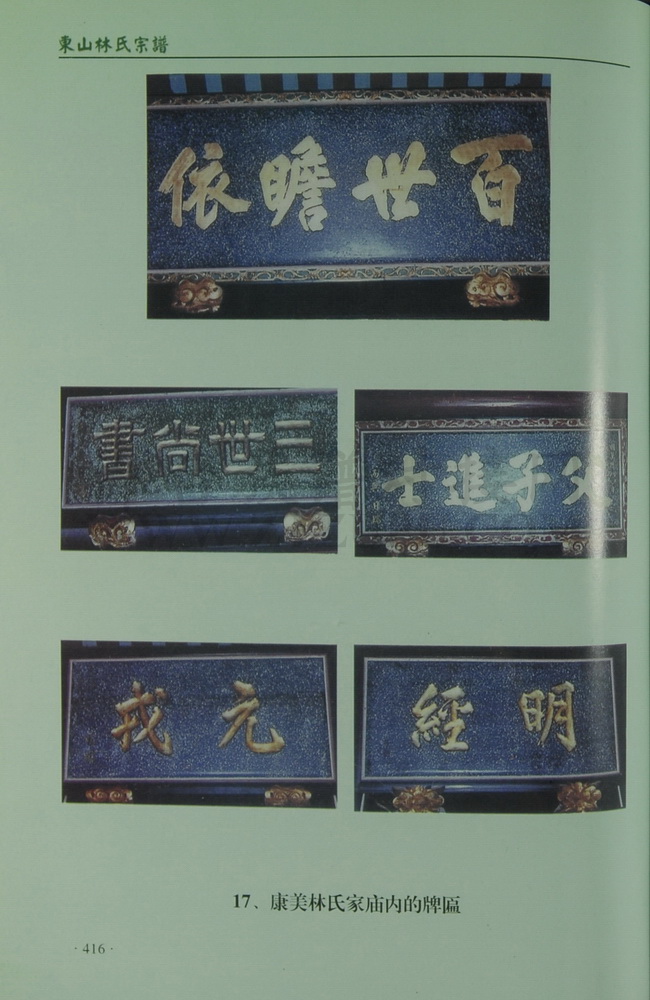 東山林氏宗譜
百世瞻依
三世尚書
父子進士
元戎
明經
17、康美林氏家庙内的牌匾
·416·